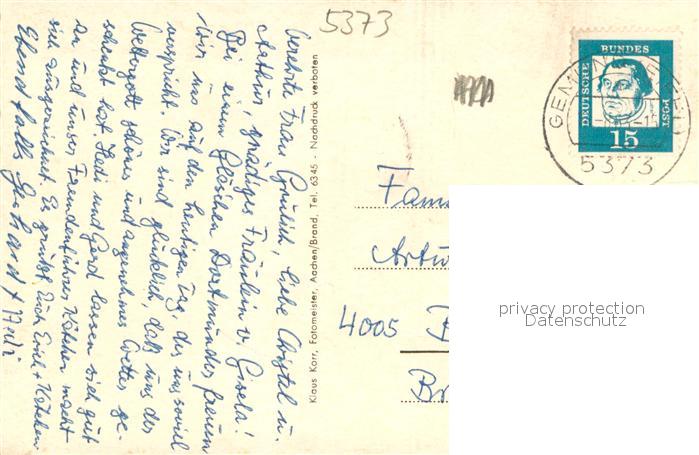 5373
Verehrte Frau Greulich, liebe Christel u.
Arthur, gnädiges Fräulein v. Gisela!
Bei einem Gläschen Dortmunder freuen
wir uns auf den heutigen Tag, der uns soviel
verspricht. Wir sind glücklich, daß uns der
Wettergott schönes und angenehmes Wetter ge-
schenkt hat. Hedi und Gerd lassen sich gut
an und unser Fremdenführer Kätchen macht
sich ausgezeichnet. Es grüßt Euch Erich + Kätchen
Ebenfalls Gerhard + Hedi
Klaus Korr, Fotomeister, Aachen/Brand, Tel. 6345 - Nachdruck verboten
DEUTSCHE BUNDES POST
15
GEMÜND
5373
Fam
Artu
4005
Br
privacy protection
Datenschutz